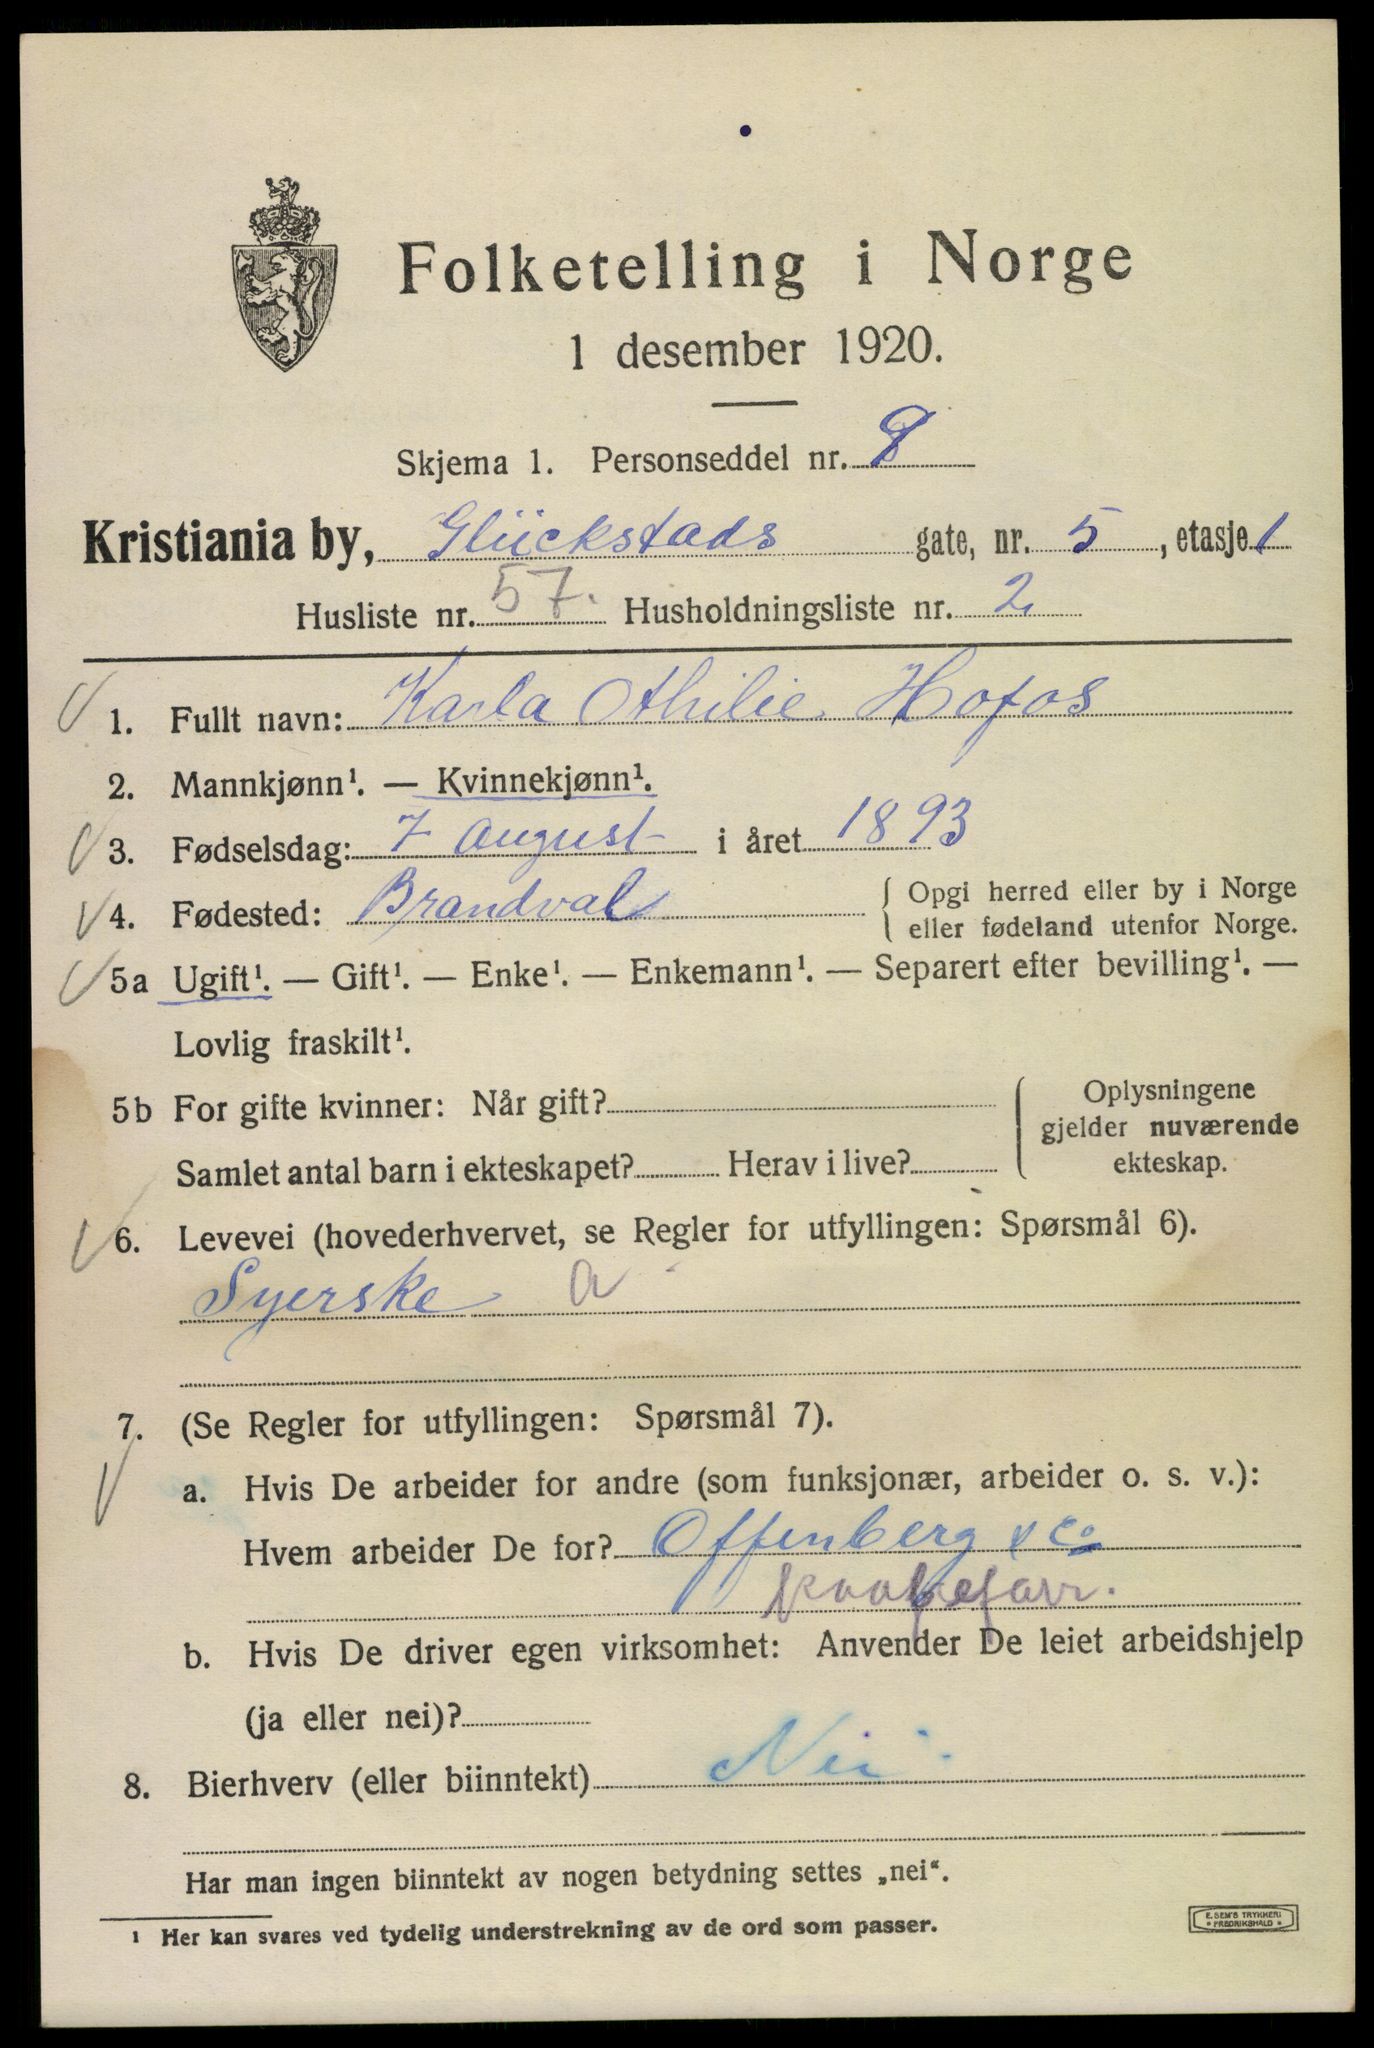 Folketelling i Norge
1 desember 1920.
Skjema 1. Personseddel nr. 8
Kristiania by, Glückstads gate, nr. 5, etasje 1
Husliste nr. 57. Husholdningsliste nr. 2
1. Fullt navn: Karla Othilie Hofos
2. Mannkjønn¹. — Kvinnekjønn¹.
3. Fødselsdag: 7 august i året 1893
4. Fødested: Brandval { Opgi herred eller by i Norge
eller fødeland utenfor Norge.
5a Ugift¹. — Gift¹. — Enke¹. — Enkemann¹. — Separert efter bevilling¹. —
Lovlig fraskilt¹.
5b For gifte kvinner: Når gift?
Samlet antal barn i ekteskapet? Herav i live?
Oplysningene
gjelder nuværende
ekteskap.
6. Levevei (hovederhvervet, se Regler for utfyllingen: Spørsmål 6).
Syerske a
7. (Se Regler for utfyllingen: Spørsmål 7).
a. Hvis De arbeider for andre (som funksjonær, arbeider o. s. v.):
Hvem arbeider De for? Offenberg & Co
b. Hvis De driver egen virksomhet: Anvender De leiet arbeidshjelp
(ja eller nei)?
8. Bierhverv (eller biinntekt) Nei
Har man ingen biinntekt av nogen betydning settes „nei“.
¹ Her kan svares ved tydelig understrekning av de ord som passer.
E. SEM'S TRYKKERI
* FREDRIKSHALD *